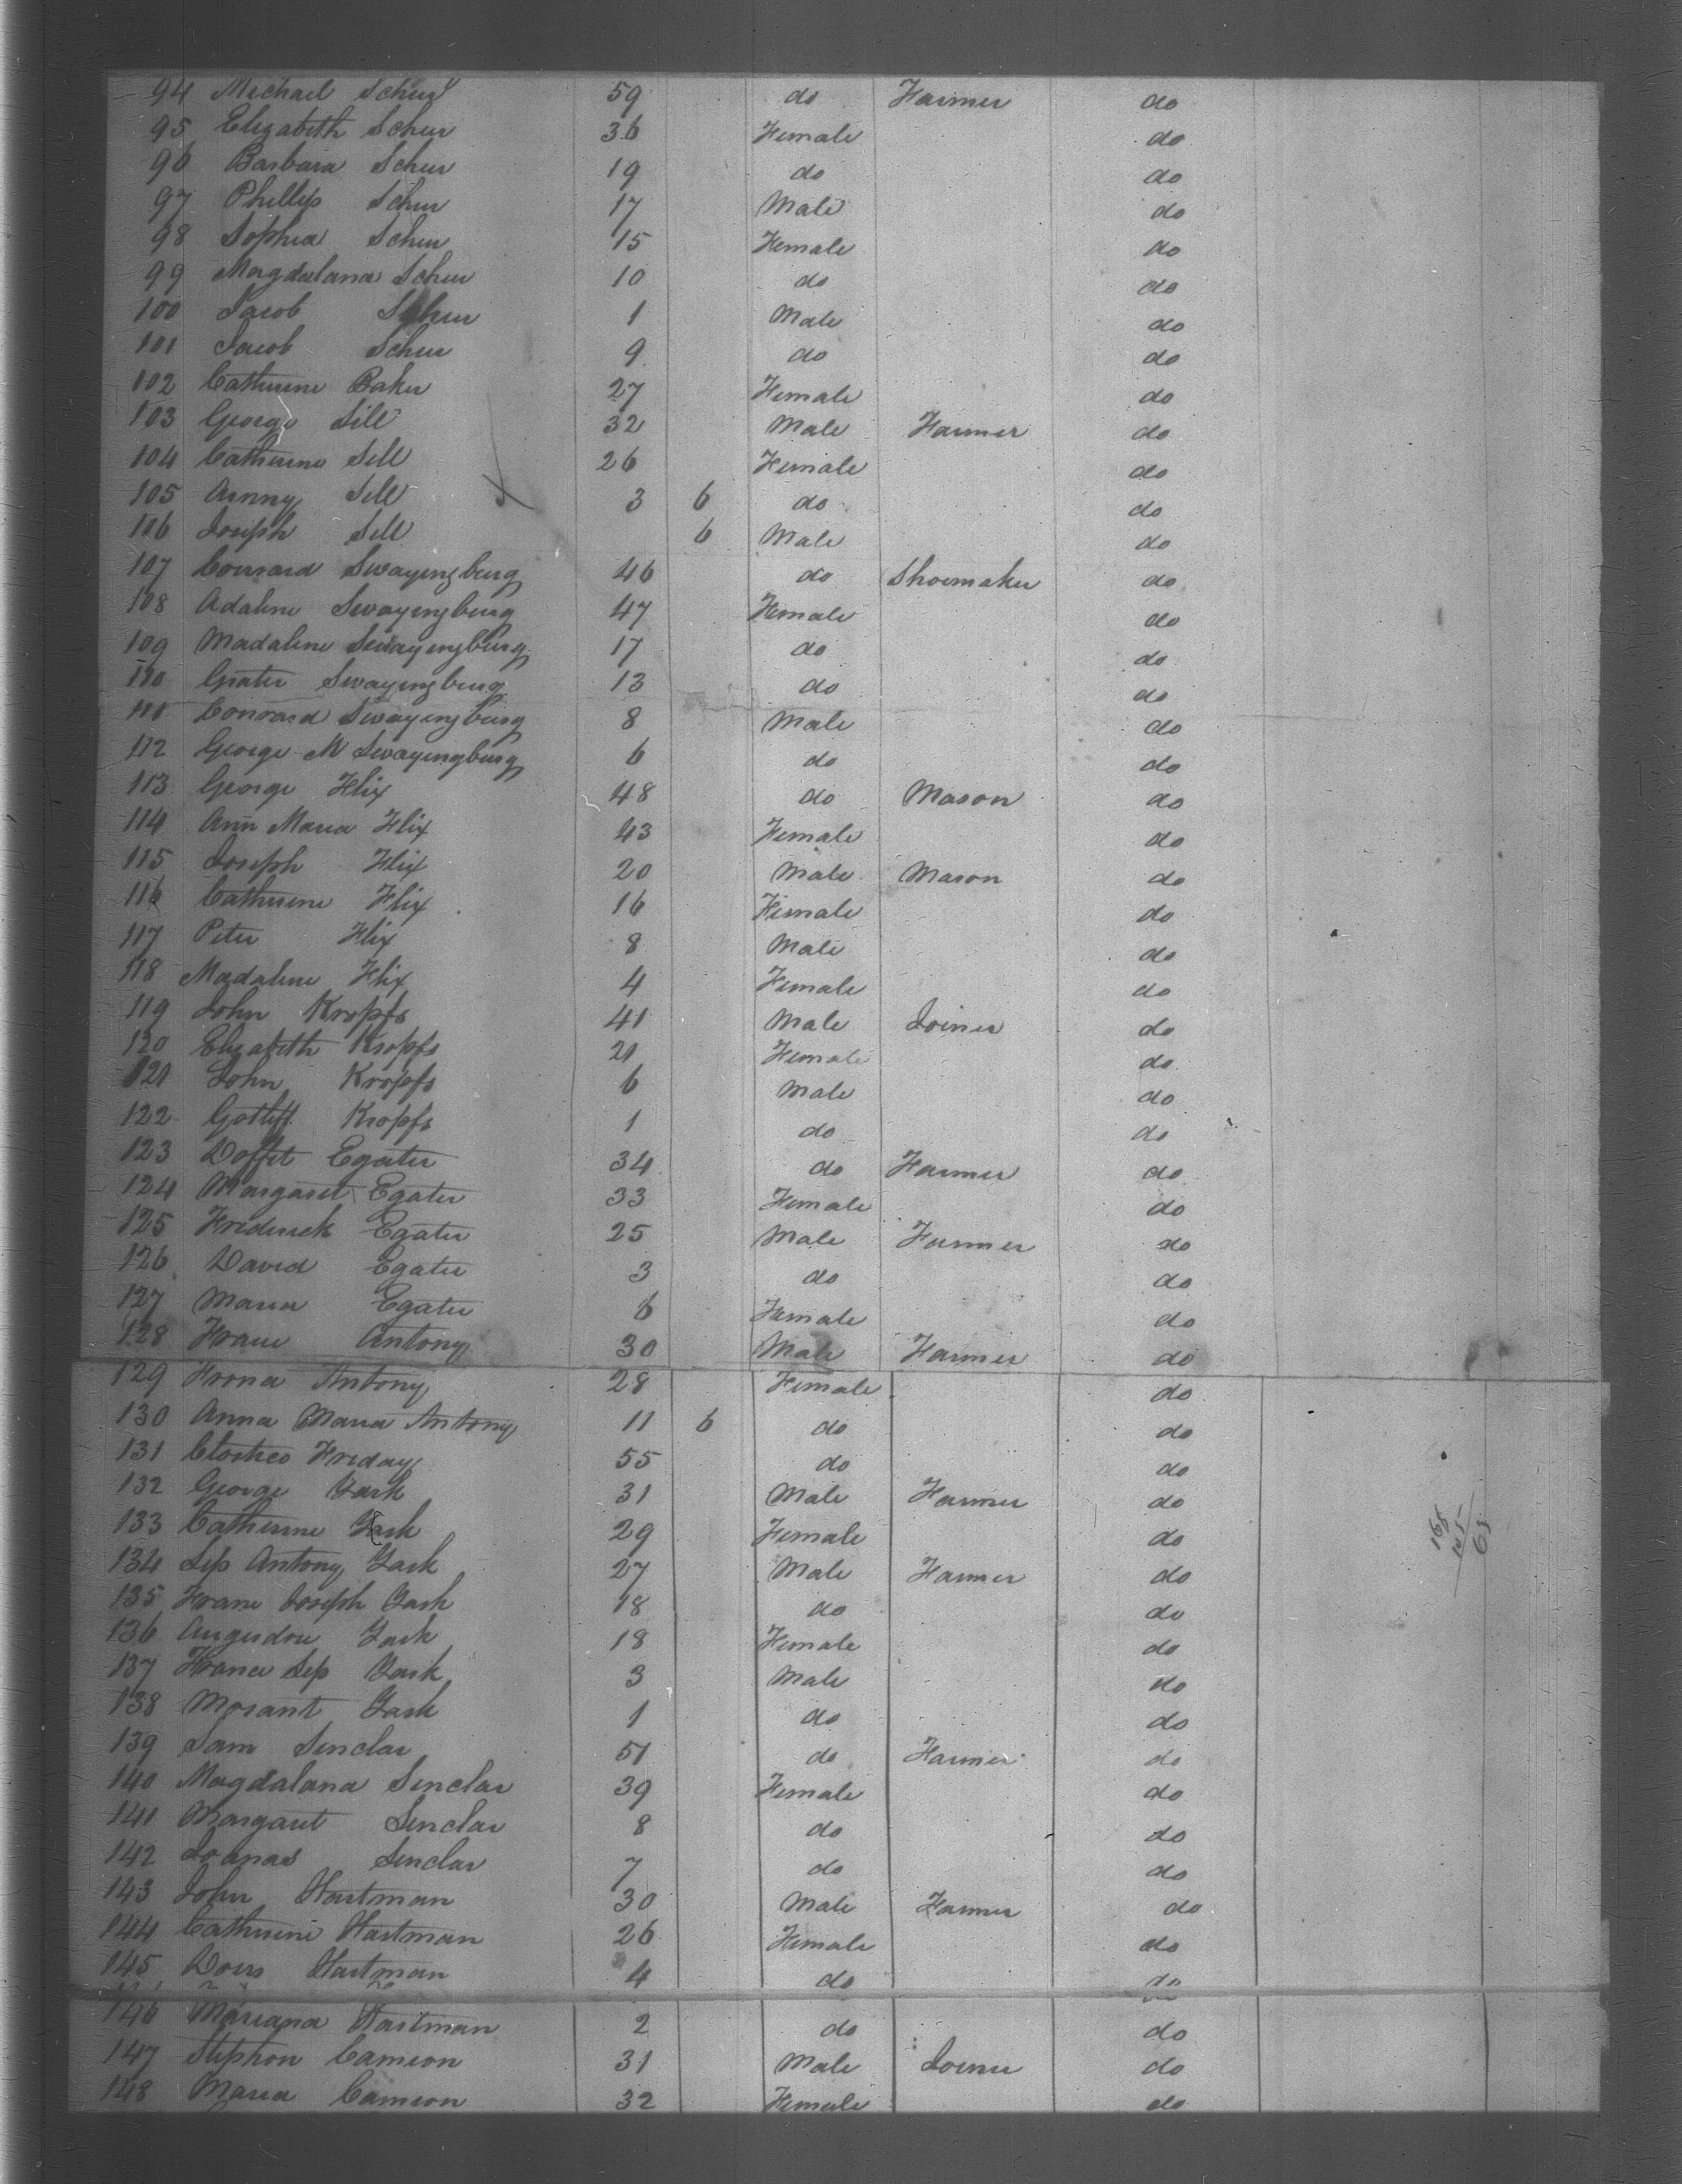 94 Michael Scheur 59 do Farmer do
95 Elizabeth Scheur 36 Female do
96 Barbara Scheur 19 do do
97 Phillip Scheur 17 Male do
98 Sophia Scheur 15 Female do
99 Magdalana Scheur 10 do do
100 Jacob Scheur 1 Male do
101 Jacob Scheur 9 do do
102 Catherine Baker 27 Female do
103 George Sill 32 Male Farmer do
104 Catherine Sill 26 Female do
105 Anny Sill 3 6 do do
106 Joseph Sill 6 Male do
107 Conrard Swayingburg 46 do Shoemaker do
108 Adaline Swayingburg 47 Female do
109 Madaline Swayingburg 17 do do
110 Grater Swayingburg 13 do do
111 Conrard Swayingburg 8 Male do
112 George M Swayingburg 6 do do
113 George Flix 48 do Mason do
114 Ann Maria Flix 43 Female do
115 Joseph Flix 20 Male Mason do
116 Catherine Flix 16 Female do
117 Peter Flix 8 Male do
118 Madaline Flix 4 Female do
119 John Kropfs 41 Male Joiner do
120 Elizabeth Kropfs 21 Female do
121 John Kropfs 6 Male do
122 Gotliff Kropfs 1 do do
123 Doffet Egater 34 do Farmer do
124 Margaret Egater 33 Female do
125 Frederick Egater 25 Male Farmer do
126 David Egater 3 do do
127 Maria Egater 6 Female do
128 Frane Antony 30 Male Farmer do
129 Frona Antony 28 Female do
130 Anna Maria Antony 11 6 do do
131 Friday 55 do do
132 George Gark 31 Male Farmer do
133 Catherine Gark 29 Female do
134 Sep Antony Gark 27 Male Farmer do
135 Frane Joseph Gark 18 do do
136 Augusdore Gark 18 Female do
137 Frane Sep Gark 3 Male do
138 Morant Gark 1 do do
139 Sam Sinclar 51 do Farmer do
140 Magdalana Sinclar 39 Female do
141 Margaret Sinclar 8 do do
142 Joanas Sinclar 7 do do
143 John Hartman 30 Male Farmer do
144 Catherine Hartman 26 Female do
145 Dores Hartman 4 do do
146 Mariana Hartman 2 do do
147 Stephon Camron 31 Male Joiner do
148 Maria Camron 32 Female do